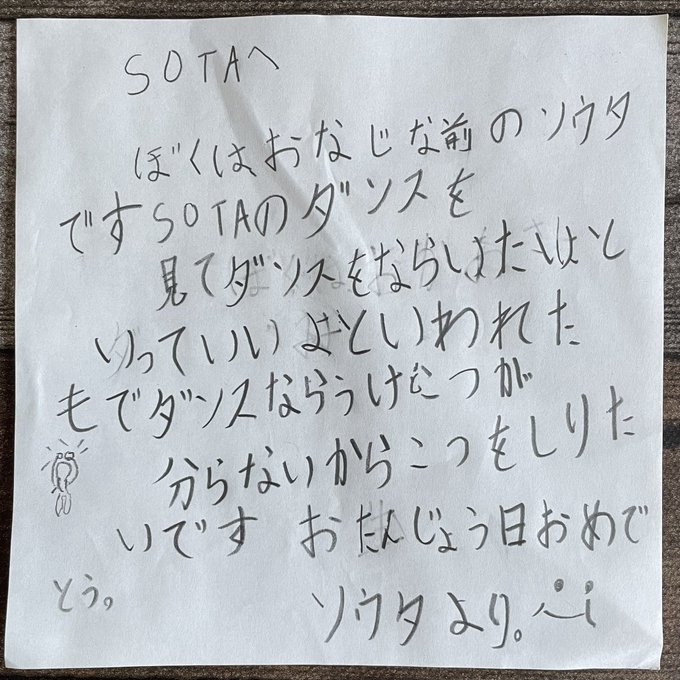 SOTAへ
ぼくは、おなじな前のソウタ
ですSOTAのダンスを
見てダンスをならいはたいと
いっていいよといわれた
もでダンスならうけどつが
分らないからこつをしりた
いです おたんじょう日おめで
とう。
ソウタより。